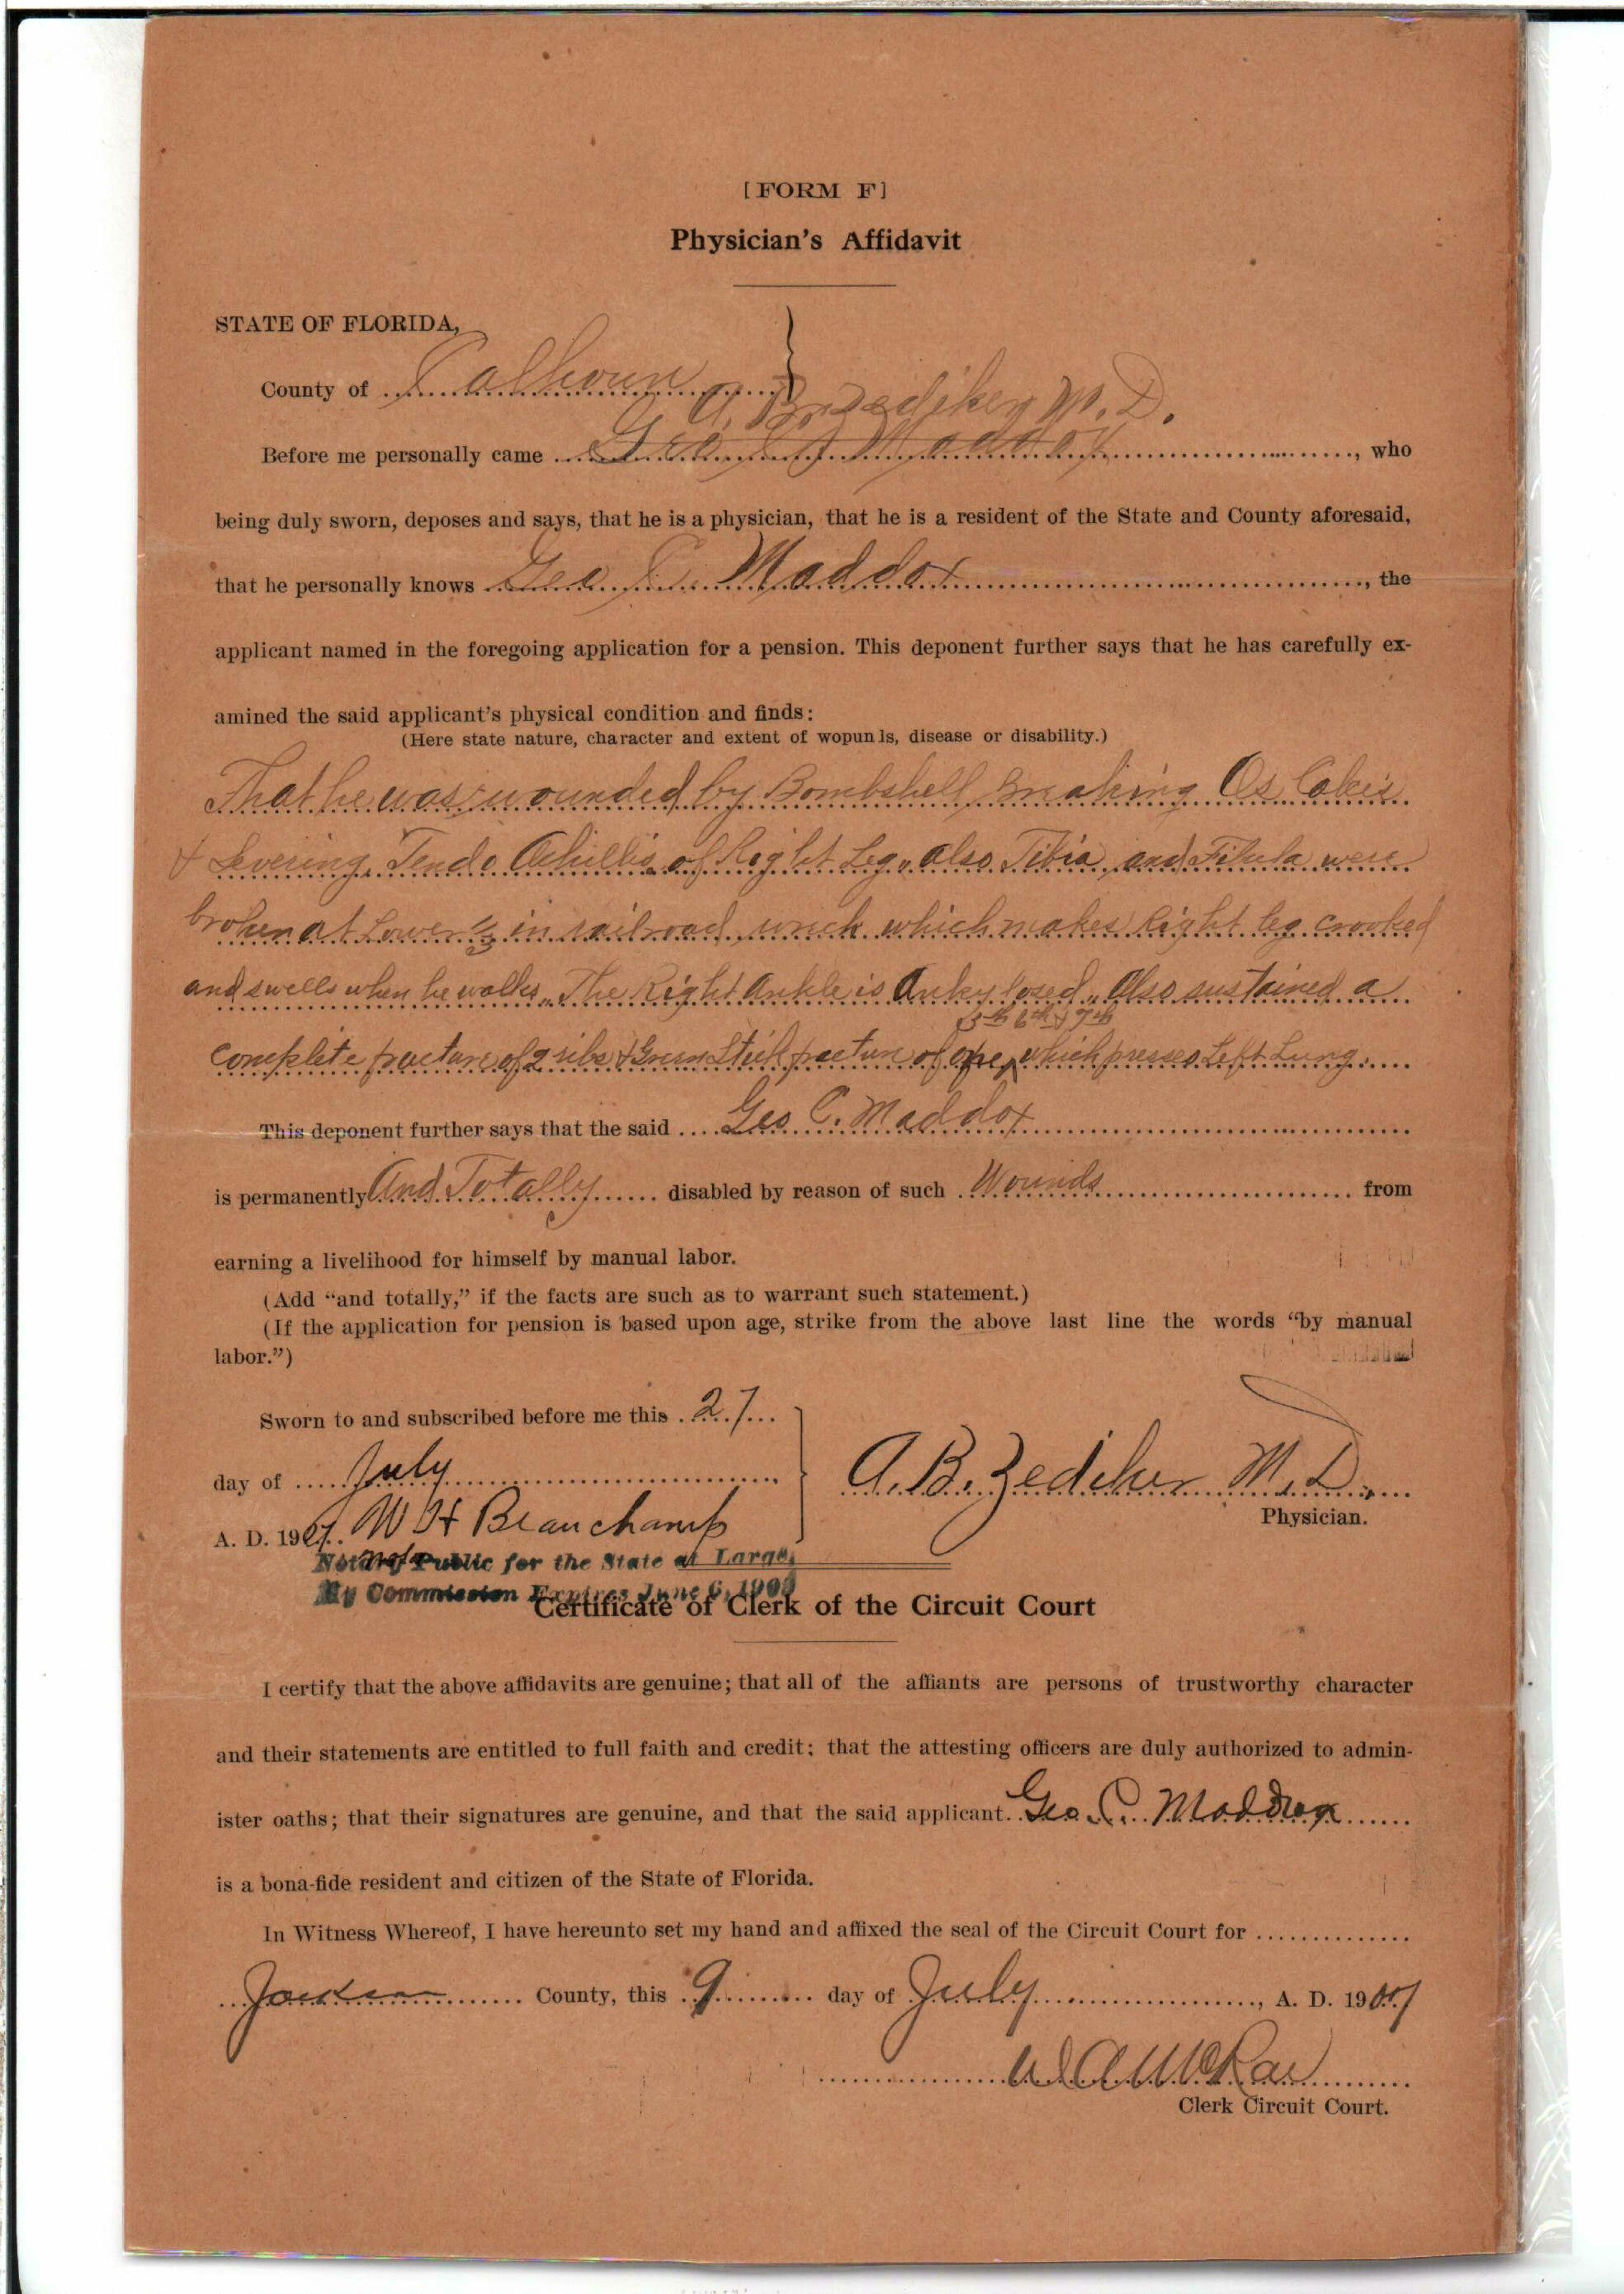 [FORM F]
Physician's Affidavit
STATE OF FLORIDA,
County of Calhoun
A. B. Zediker M. D.
Before me personally came Geo C Maddox, who
being duly sworn, deposes and says, that he is a physician, that he is a resident of the State and County aforesaid,
that he personally knows Geo C. Maddox, the
applicant named in the foregoing application for a pension. This deponent further says that he has carefully ex-
amined the said applicant's physical condition and finds:
(Here state nature, character and extent of wopunls, disease or disability.)
That he was wounded by Bombshell, breaking Os Calcis
& Severing Tendo Achillis of Right Leg, also Tibia and Fibula were
broken at Lower 1/3 in railroad wreck which makes Right leg crooked
and swells when he walks. The Right Ankle is Ankylosed. Also sustained a
5th 6th & 7th
complete fracture of 2 ribs & Green Stick fracture of one, which presses Left Lung.
This deponent further says that the said Geo C. Maddox
is permanently And Totally disabled by reason of such Wounds from
earning a livelihood for himself by manual labor.
(Add "and totally," if the facts are such as to warrant such statement.)
(If the application for pension is based upon age, strike from the above last line the words "by manual
labor.")
Sworn to and subscribed before me this 27
day of July
A. B. Zediker M. D.
Physician.
A. D. 1907. W H Beauchamp
Notary Public for the State at Large,
My Commission Expires June 6, 1909
Certificate of Clerk of the Circuit Court
I certify that the above affidavits are genuine; that all of the affiants are persons of trustworthy character
and their statements are entitled to full faith and credit; that the attesting officers are duly authorized to admin-
ister oaths; that their signatures are genuine, and that the said applicant Geo. C. Maddox
is a bona-fide resident and citizen of the State of Florida.
In Witness Whereof, I have hereunto set my hand and affixed the seal of the Circuit Court for
Jackson County, this 9 day of July, A. D. 1907
W A McRae
Clerk Circuit Court.